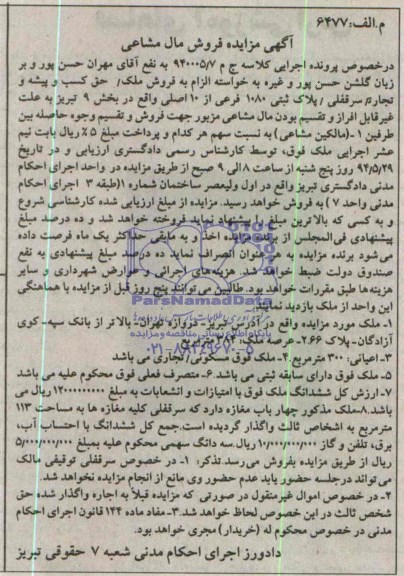 م.الف:۶۴۷۷
آگهی مزایده فروش مال مشاعی
درخصوص پرونده اجرایی کلاسه ج م ۹۴۰۰۰۵/۷ به نفع آقای مهران حسن پور و بر
زیان گلشن حسن پور و غیره به خواسته الزام به فروش ملک/ حق کسب و پیشه و
تجارت/ سرقفلی / پلاک ثبتی ۱۰۸۰ فرعی از ۱۰ اصلی واقع در بخش ۹ تبریز به علت
غیرقابل افراز و تقسیم بودن مال مشاعی مزبور جهت فروش و تقسیم وجوه حاصله بین
طرفین ۱-(مالکین مشاعی) به نسبت سهم هر کدام و پرداخت مبلغ ۵٪ ریال بابت نیم
عشر اجرایی ملک فوق، توسط کارشناس رسمی دادگستری ارزیابی و در تاریخ
۹۴/۵/۲۹ روز پنج شنبه از ساعت ۸ الی ۹ صبح از طریق مزایده در واحد اجرای احکام
مدنی دادگستری تبریز واقع در اول ولیعصر ساختمان شماره ۱(طبقه ۳ اجرای احکام
مدنی واحد ۷ ) به فروش خواهد رسید. مزایده از مبلغ ارزیابی شده کارشناسی شروع
و به کسی که بالاترین مبلغ را پیشنهاد نماید فروخته خواهد شد و ده درصد مبلغ
پیشنهادی فی‌المجلس از برنده مزایده اخذ و به مابقی حداکثر یک ماه فرصت داده
می‌شود برنده مزایده به هر عنوان انصراف نماید ده درصد مبلغ پیشنهادی به نفع
صندوق دولت ضبط خواهد شد. هزینه‌های اجرائی و عوارض شهرداری و سایر
هزینه‌ها طبق مقررات خواهد بود. طالبین می‌توانند پنج روز قبل از مزایده با هماهنگی
این واحد از ملک بازدید نمایند.
ParsNamadData
۱- ملک مورد مزایده واقع در آدرس تبریز- دروازه تهران- بالاتر از بانک سپه- کوی
آزادگان- پلاک ۲۶۶ ۲- عرصه ملک: ۳۸۴ مترمربع
۰۲۱-۸۸۳۴۹۶۷۰-۵
۳- اعیانی: ۳۰۰ مترمربع ۴- ملک فوق مسکونی/ تجاری می باشد
۵- ملک فوق دارای سابقه ثبتی می باشد ۶- متصرف فعلی فوق محکوم علیه می باشد
۷- ارزش کل ششدانگ ملک فوق با امتیازات و انشعابات به مبلغ ریال می
باشد.۸-ملک مذکور چهار باب مغازه دارد که سرقفلی کلیه مغازه ها به مساحت ۱۱۳
مترمربع به اشخاص ثالث واگذار گردیده است.جمع کل ششدانگ با احتساب آب،
برق، تلفن و گاز ۱۰/۰۰۰/۰۰۰/۰۰۰ ریال.سه دانگ سهمی محکوم علیه بمبلغ ۵/۰۰۰/۰۰۰/۰۰۰
ریال از طریق مزایده بفروش می‌رسد.تذکر: ۱- در خصوص سرقفلی توقیفی مالک
می‌تواند درجلسه حضور یابد عدم حضور وی مانع از انجام مزایده نخواهد شد.
۲- در خصوص اموال غیرمنقول در صورتی که مزایده قبلاً به اجاره واگذار شده حق
شخص ثالث در این خصوص لحاظ خواهد شد.۳- مفاد ماده ۱۴۴ قانون اجرای احکام
مدنی در خصوص محکوم له (خریدار) مجری خواهد بود.
دادورز اجرای احکام مدنی شعبه ۷ حقوقی تبریز